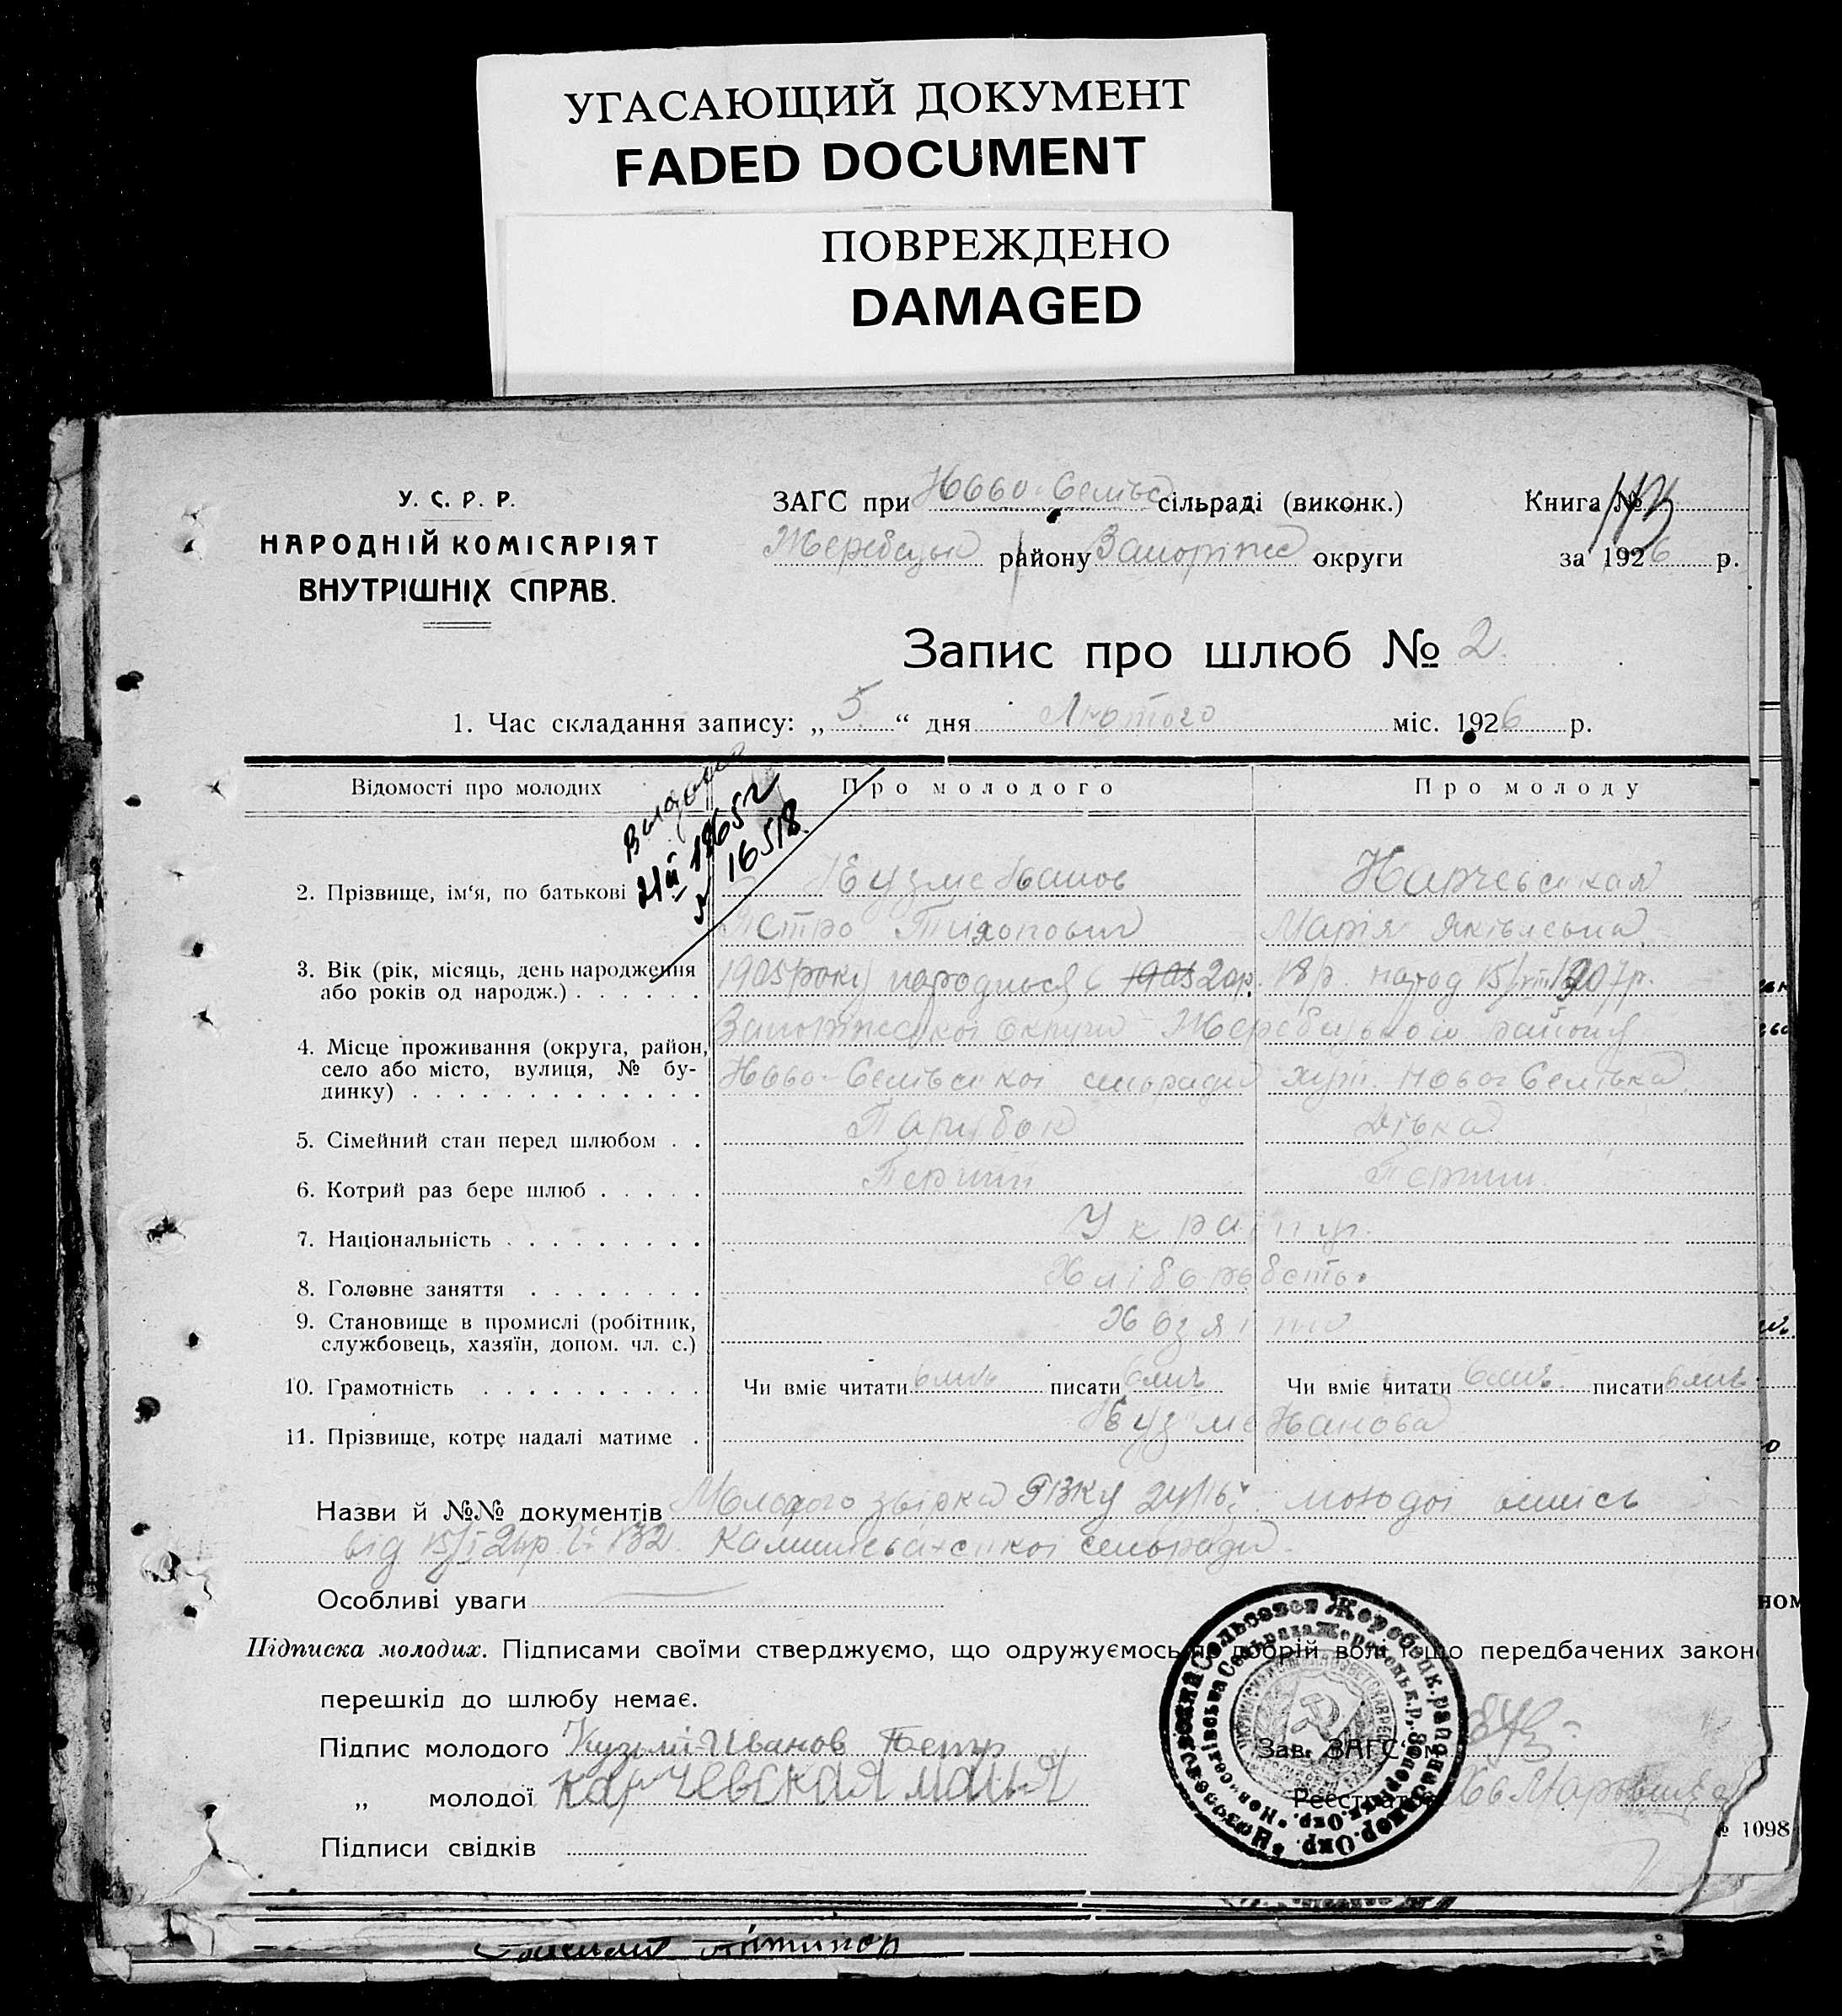 УГАСАЮЩИЙ ДОКУМЕНТ
FADED DOCUMENT
ПОВРЕЖДЕНО
DAMAGED
У. С. Р. Р.
НАРОДНІЙ КОМІСАРІЯТ
ВНУТРІШНІХ СПРАВ.
ЗАГС при Ново-Селівс сільраді (виконк.)
Жеребецьк району Запоріжс округи
Книга №
за 1926 р.
Запис про шлюб № 2
1. Час складання запису: „ 5 “ дня Лютого міс. 1926 р.
Відомості про молодих
Про молодого
Про молоду
16518
2. Прізвище, ім‘я, по батькові
Кузме Иванов
Карчевская
Петро Тихонович
Марія Яківлевна
3. Вік (рік, місяць, день народження
або років од народж.) . . . . . .
1905 року народився 1905 20 р.
18 р. народ 15/VIII 1907 р.
4. Місце проживання (округа, район,
село або місто, вулиця, № бу-
динку) . . . . . . . . . . . . .
Запоріжської округи Жеребецького району
Ново-Селівської сельради хут. Ново Селівка
5. Сімейний стан перед шлюбом . .
Парубок
Дівка
6. Котрий раз бере шлюб . . . . .
Перший
Перший
7. Національність . . . . . . . . .
Украінці
8. Головне заняття . . . . . . . .
Хліборобств.
9. Становище в промислі (робітник,
службовець, хазяїн, допом. чл. с.)
10. Грамотність . . . . . . . . . .
Чи вміє читати вміє писати вміє
Чи вміє читати вміє писати вміє
11. Прізвище, котре надалі матиме .
Кузме Иванова
Назви й №№ документів Молодого
від 15/I 26 р. № 132 Камишевахської сельради
Особливі уваги
Підписка молодих. Підписами своїми стверджуємо, що одружуємось по добрій волі і що передбачених законо
перешкід до шлюбу немає.
Підпис молодого Кузьмі-Иванов Петр
„ молодої Карчевская Маня
Підписи свідків
Зав. ЗАГС‘ом
Реєстратор
№ 1098